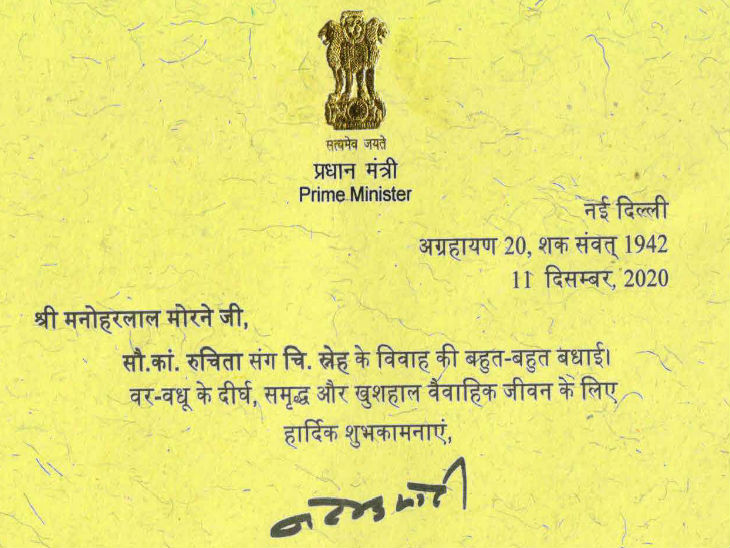 सत्यमेव जयते
प्रधान मंत्री
Prime Minister
नई दिल्ली
अग्रहायण 20, शक संवत् 1942
11 दिसम्बर, 2020
श्री मनोहरलाल मोरने जी,
सौ.कां. रुचिता संग चि. स्नेह के विवाह की बहुत-बहुत बधाई।
वर-वधू के दीर्घ, समृद्ध और खुशहाल वैवाहिक जीवन के लिए
हार्दिक शुभकामनाएं,